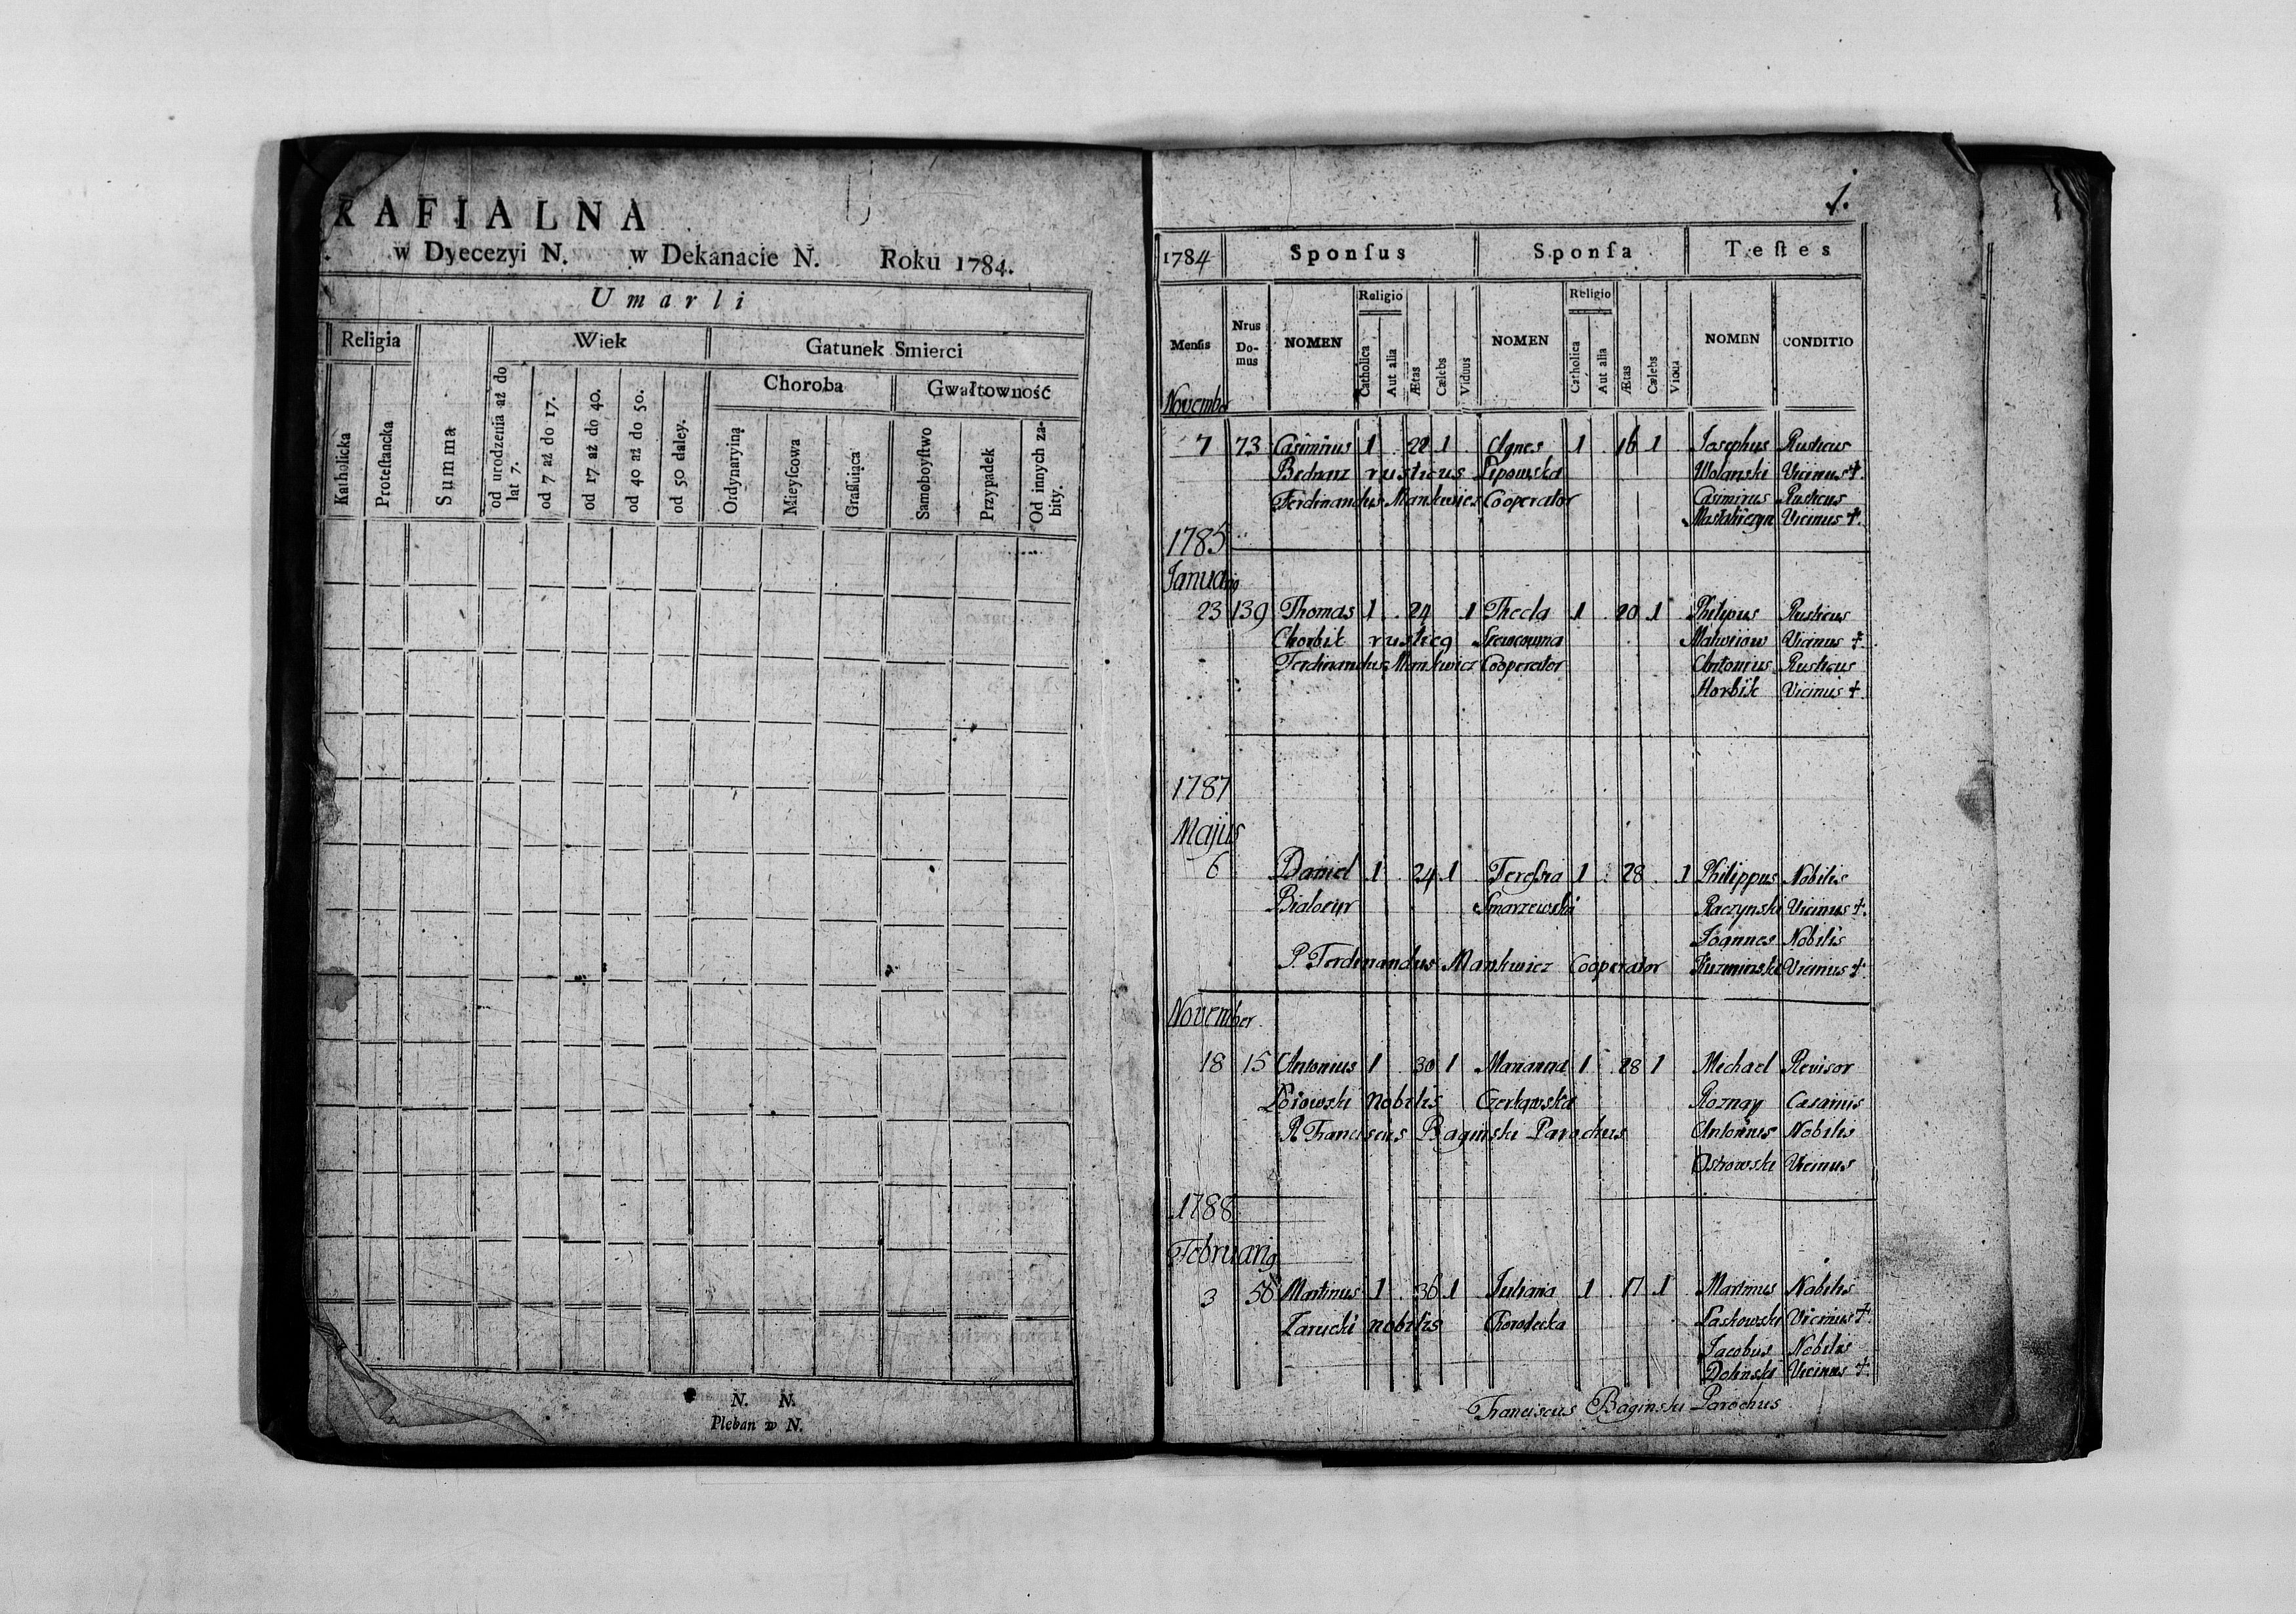 RAFIALNA
w Dyecezyi N. w Dekanacie N. Roku 1784.
Umarli
Religia Wiek Gatunek Smierci
Choroba Gwałtowność
Katholicka
Proteſtancka
Summa
od urodzenia aż do lat 7.
od 7 aż do 17.
od 17 aż do 40.
od 40 aż do 50.
od 50 daley.
Ordynaryiną
Mieyſcowa
Graſſuiąca
Samoboyſtwo
Przypadek
Od innych zabity.
N. N.
Pleban w N.
1.
1784 Sponſus Sponſa Teſtes
Menſis Nrus Domus NOMEN Religio Catholica Aut alia Ætas Cælebs Viduus NOMEN Religio Catholica Aut alia Ætas Cælebs Vidua NOMEN CONDITIO
November
7 73 Casimirus 1 22 1 Agnes 1 16 1 Josephus Rusticus
Bednarz rusticus Lipowska Wolanski Vicinus +.
Ferdinandus Mankwicz Cooperator Casimirus Rusticus
Vicinus +.
1785
Januarij
23 139 Thomas 1 24 1 Thecla 1 20 1 Philipus Rusticus
Chorbik Vicinus +.
Ferdinandus Mankwicz Cooperator Antonius Rusticus
Horbik Vicinus +.
1787
Majus
6 Daniel 1 24 1 1 28 1 Philippus Nobilis
Smarzewska Raczynski Vicinus +.
Joannes Nobilis
P. Ferdinandus Mankwicz Cooperator Vicinus +.
November
18 15 Antonius 1 30 1 Marianna 1 28 1 Michael Revisor
nobilis Roznay
R. Franciscus Baginski Parochus Antonius Nobilis
Ostrowski Vicinus
1788
Februarij
3 56 Martinus 1 36 1 Juliana 1 17 1 Martinus Nobilis
Zarucki nobilis Chorodecka Laskowski Vicinus +.
Jacobus Nobilis
Dolinski Vicinus +.
Franciscus Baginski Parochus